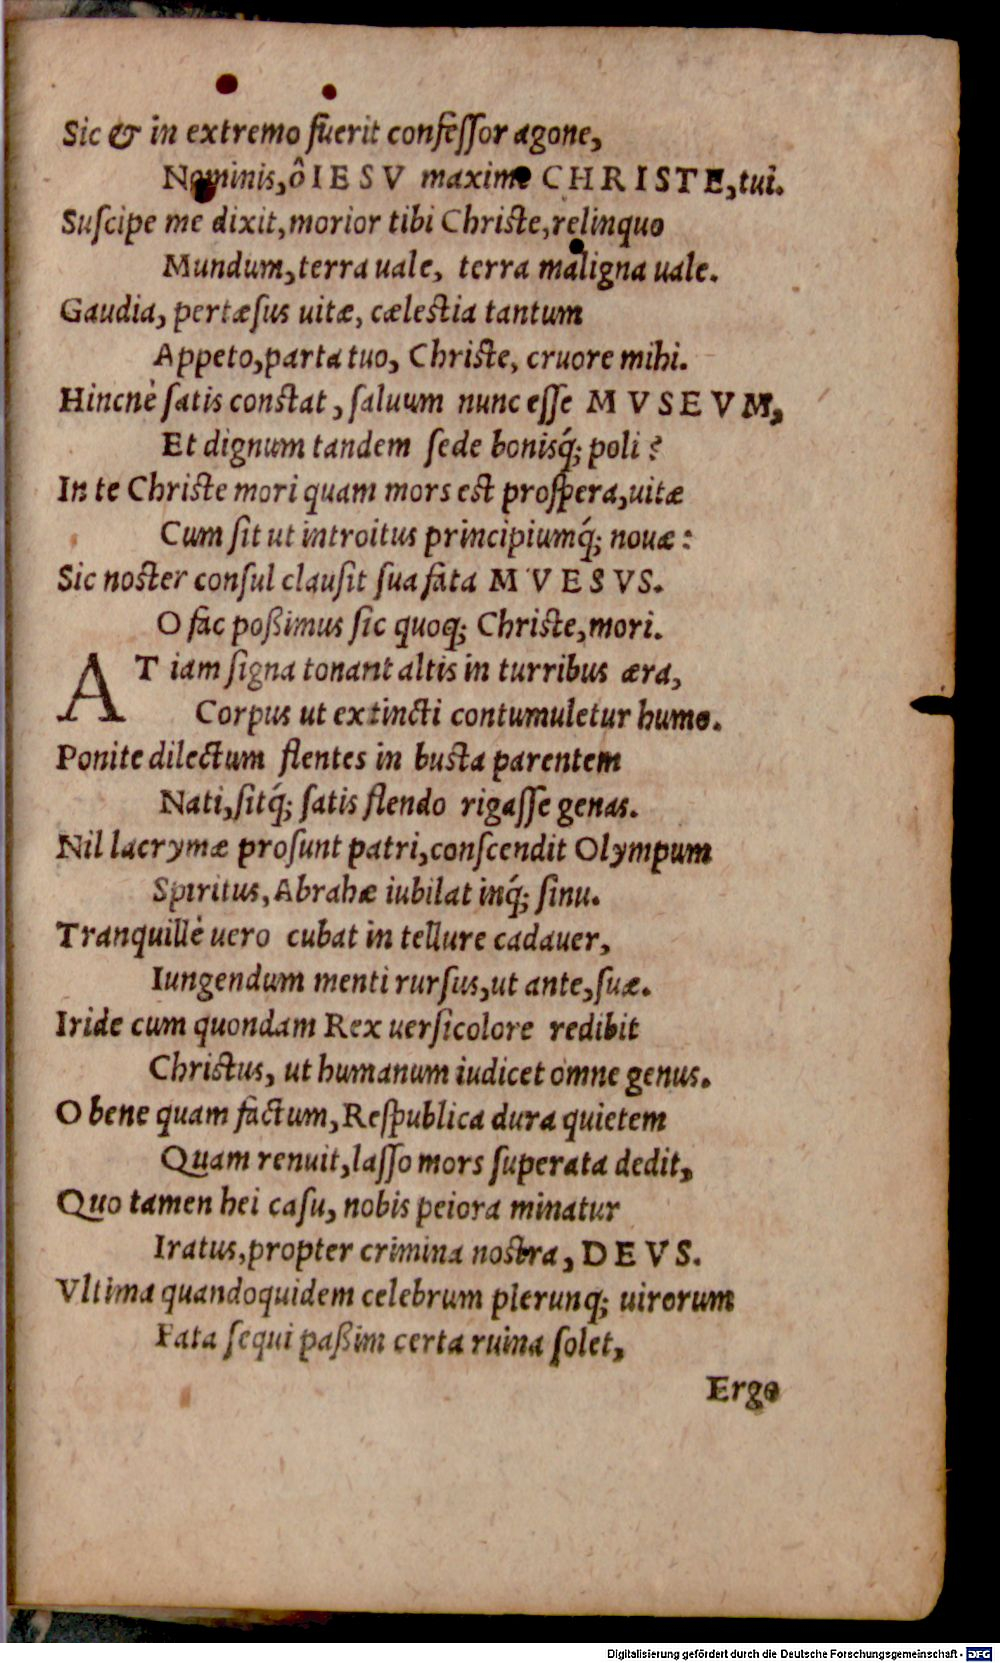 Sic & in extremo fuerit confeſſor agone,
Nominis, ô IESV maxime CHRISTE, tui.
Suſcipe me dixit, morior tibi Chriſte, relinquo
Mundum, terra uale, terra maligna uale.
Gaudia, pertæſus uitæ, cæleſtia tantum
Appeto, parta tuo, Chriſte, cruore mihi.
Hincnè ſatis conſtat, ſaluum nunc eſſe MVSEVM,
Et dignum tandem ſede bonisq́; poli?
In te Chriſte mori quam mors eſt proſpera, uitæ
Cum ſit ut introitus principiumq́; nouæ:
Sic noſter conſul clauſit ſua fata MVESVS.
O fac poßimus ſic quoq; Chriſte, mori.
AT iam ſigna tonant altis in turribus æra,
Corpus ut extincti contumuletur humo.
Ponite dilectum flentes in buſta parentem
Nati, ſitq́; ſatis flendo rigaſſe genas.
Nil lacrymæ proſunt patri, conſcendit Olympum
Spiritus, Abrahæ iubilat inq́; ſinu.
Tranquillè uero cubat in tellure cadauer,
Iungendum menti rurſus, ut ante, ſuæ.
Iride cum quondam Rex uerſicolore redibit
Chriſtus, ut humanum iudicet omne genus.
O bene quam factum, Reſpublica dura quietem
Quam renuit, laſſo mors ſuperata dedit,
Quo tamen hei caſu, nobis peiora minatur
Iratus, propter crimina noſtra, DEVS.
Vltima quandoquidem celebrum plerunq; uirorum
Fata ſequi paßim certa ruina ſolet,
Ergo
Digitalisierung gefördert durch die Deutsche Forschungsgemeinschaft - DFG